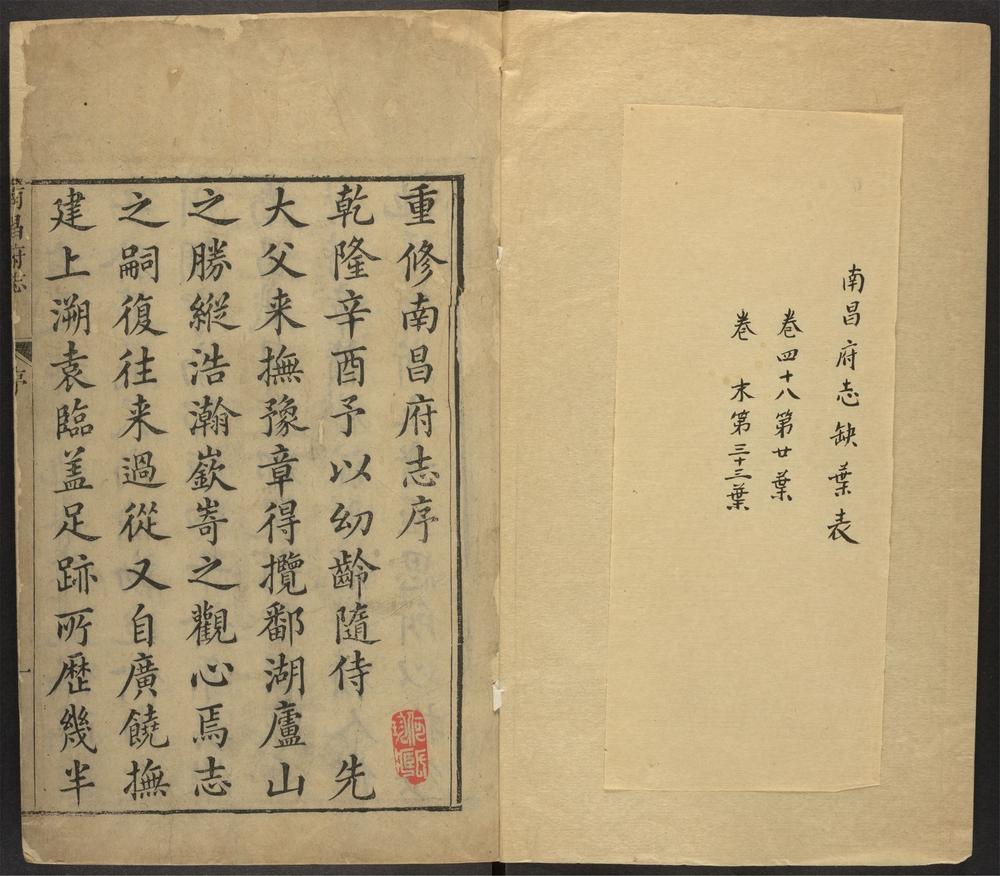 南昌府志缺葉表
卷四十八第廿葉
卷末第三十三葉
重修南昌府志序
乾隆辛酉予以幼齡隨侍 先
大父来撫豫章得攬鄱湖廬山
之勝縱浩瀚嶔嵜之觀心焉志
之嗣復往来過從又自廣饒撫
建上溯袁臨盖足跡所歷幾半
南昌府志
序
一